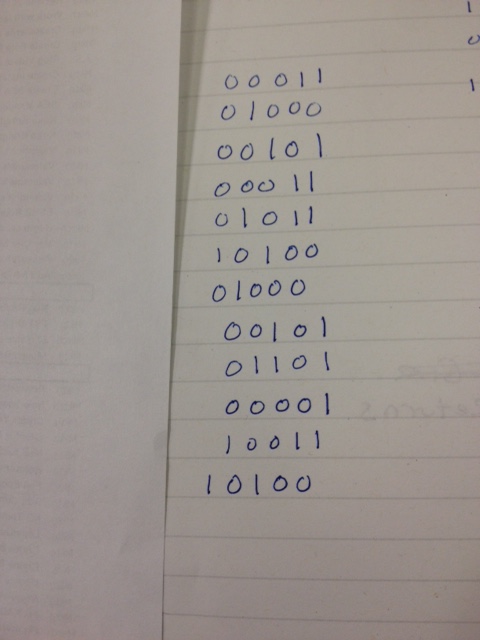 00011
01000
00101
00011
01011
10100
01000
00101
01101
00001
10011
10100
1
0
1